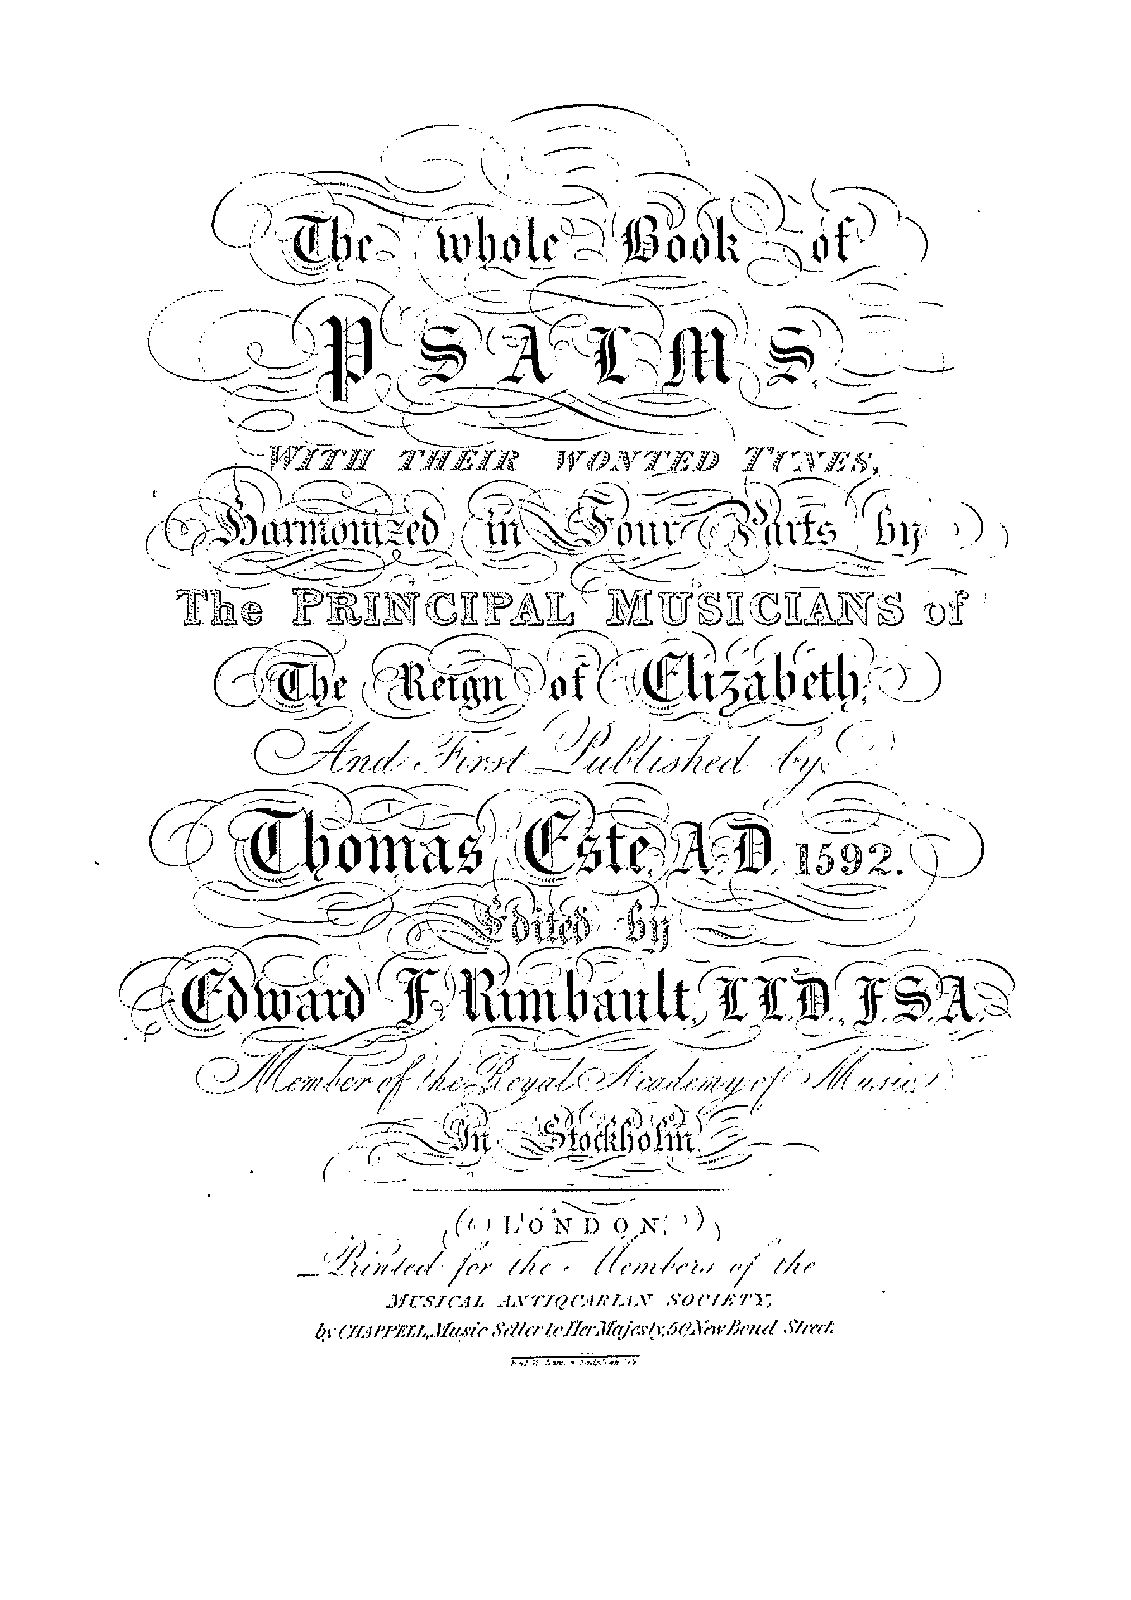 The whole Book of
PSALMS,
WITH THEIR WONTED TUNES,
Harmonized in Four Parts by
The PRINCIPAL MUSICIANS of
The Reign of Elizabeth,
And First Published by
Thomas Este, A.D. 1592.
Edited by
Edward F. Rimbault, LLD., F.S.A.
Member of the Royal Academy of Music
In Stockholm.
LONDON,
Printed for the Members of the
MUSICAL ANTIQUARIAN SOCIETY,
by CHAPPELL, Music Seller to Her Majesty, 50, New Bond Street.